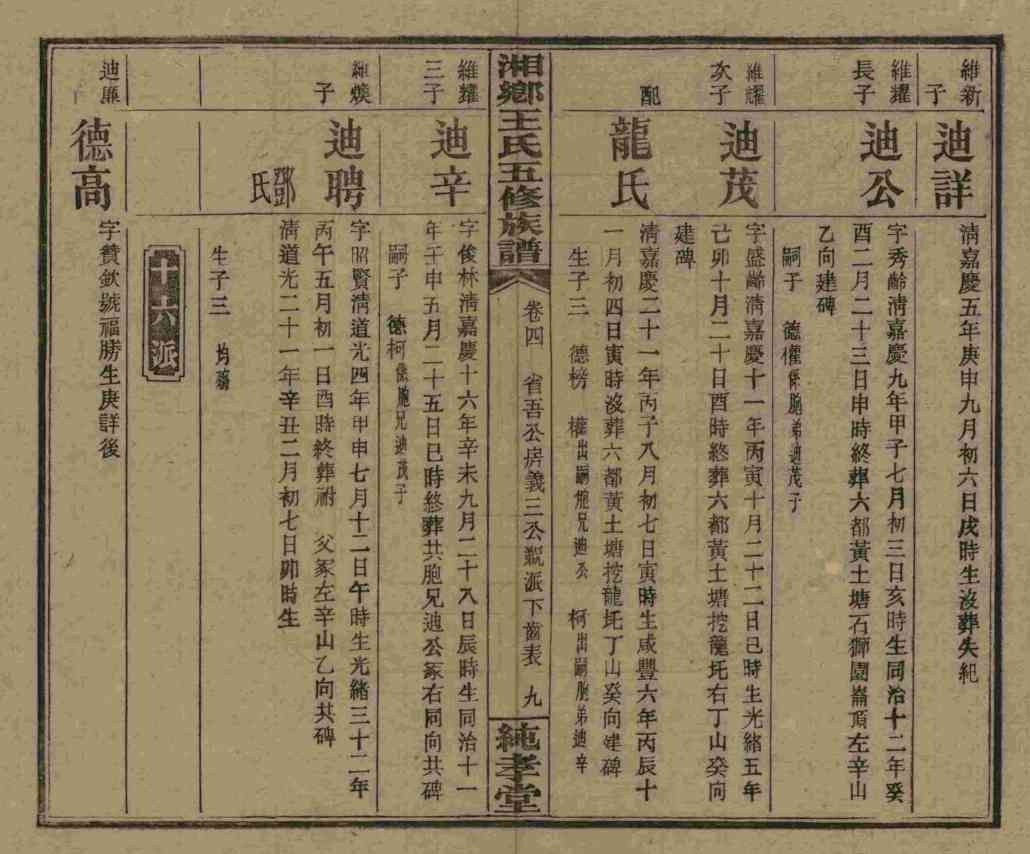 維新
子
迪詳
淸嘉慶五年庚申九月初六日戌時生沒葬失紀
維耀
長子
迪公
字秀齡淸嘉慶九年甲子七月初三日亥時生同治十二年癸
酉二月二十三日申時終葬六都黃土塘石獅園崙頂左辛山
乙向建碑
嗣子　德權係胞弟迪茂子
維耀
次子
迪茂
字盛齡淸嘉慶十一年丙寅十月二十二日巳時生光緒五年
己卯十月二十日酉時終葬六都黃土塘挖龍圫右丁山癸向
建碑
配
龍氏
淸嘉慶二十一年丙子八月初七日寅時生咸豐六年丙辰十
一月初四日寅時沒葬六都黃土塘挖龍圫丁山癸向建碑
生子三　德榜　權出嗣胞兄迪公　柯出嗣胞弟迪辛
湘鄉王氏五修族譜
卷四　省吾公房義三公派下齒表　九
純孝堂
維耀
三子
迪辛
字俊林淸嘉慶十六年辛未九月二十八日辰時生同治十一
年壬申五月二十五日巳時終葬共胞兄迪公冢右同向共碑
嗣子　德柯係胞兄迪茂子
維煥
子
迪聘
字昭賢淸道光四年甲申七月十二日午時生光緒三十二年
丙午五月初一日酉時終葬祔　父冢左辛山乙向共碑
鄧氏
淸道光二十一年辛丑二月初七日卯時生
生子三　均殤
十六派
迪廉
德高
字贊欽號福勝生庚詳後